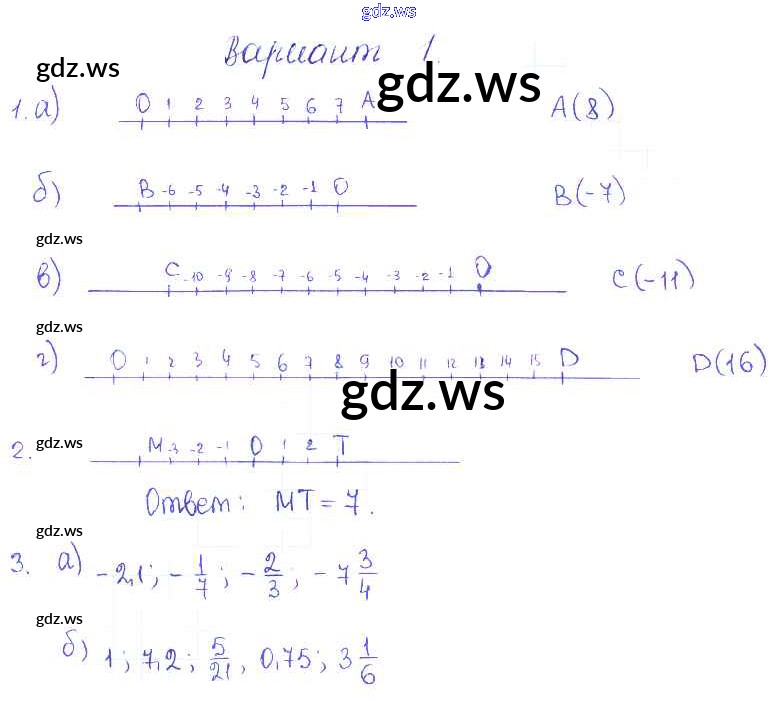 gdz.ws
Вариант 1.
gdz.ws
gdz.ws
1. а) 0 1 2 3 4 5 6 7 A A(8)
б) B -6 -5 -4 -3 -2 -1 0 B(-7)
gdz.ws
в) C -10 -9 -8 -7 -6 -5 -4 -3 -2 -1 0 C(-11)
gdz.ws
г) 0 1 2 3 4 5 6 7 8 9 10 11 12 13 14 15 D D(16)
gdz.ws
2. gdz.ws M -3 -2 -1 0 1 2 T
Ответ: MT = 7.
gdz.ws
3. а) -2,1; -1/7; -2/3; -7 3/4
gdz.ws
б) 1; 7,2; 5/21, 0,75; 3 1/6